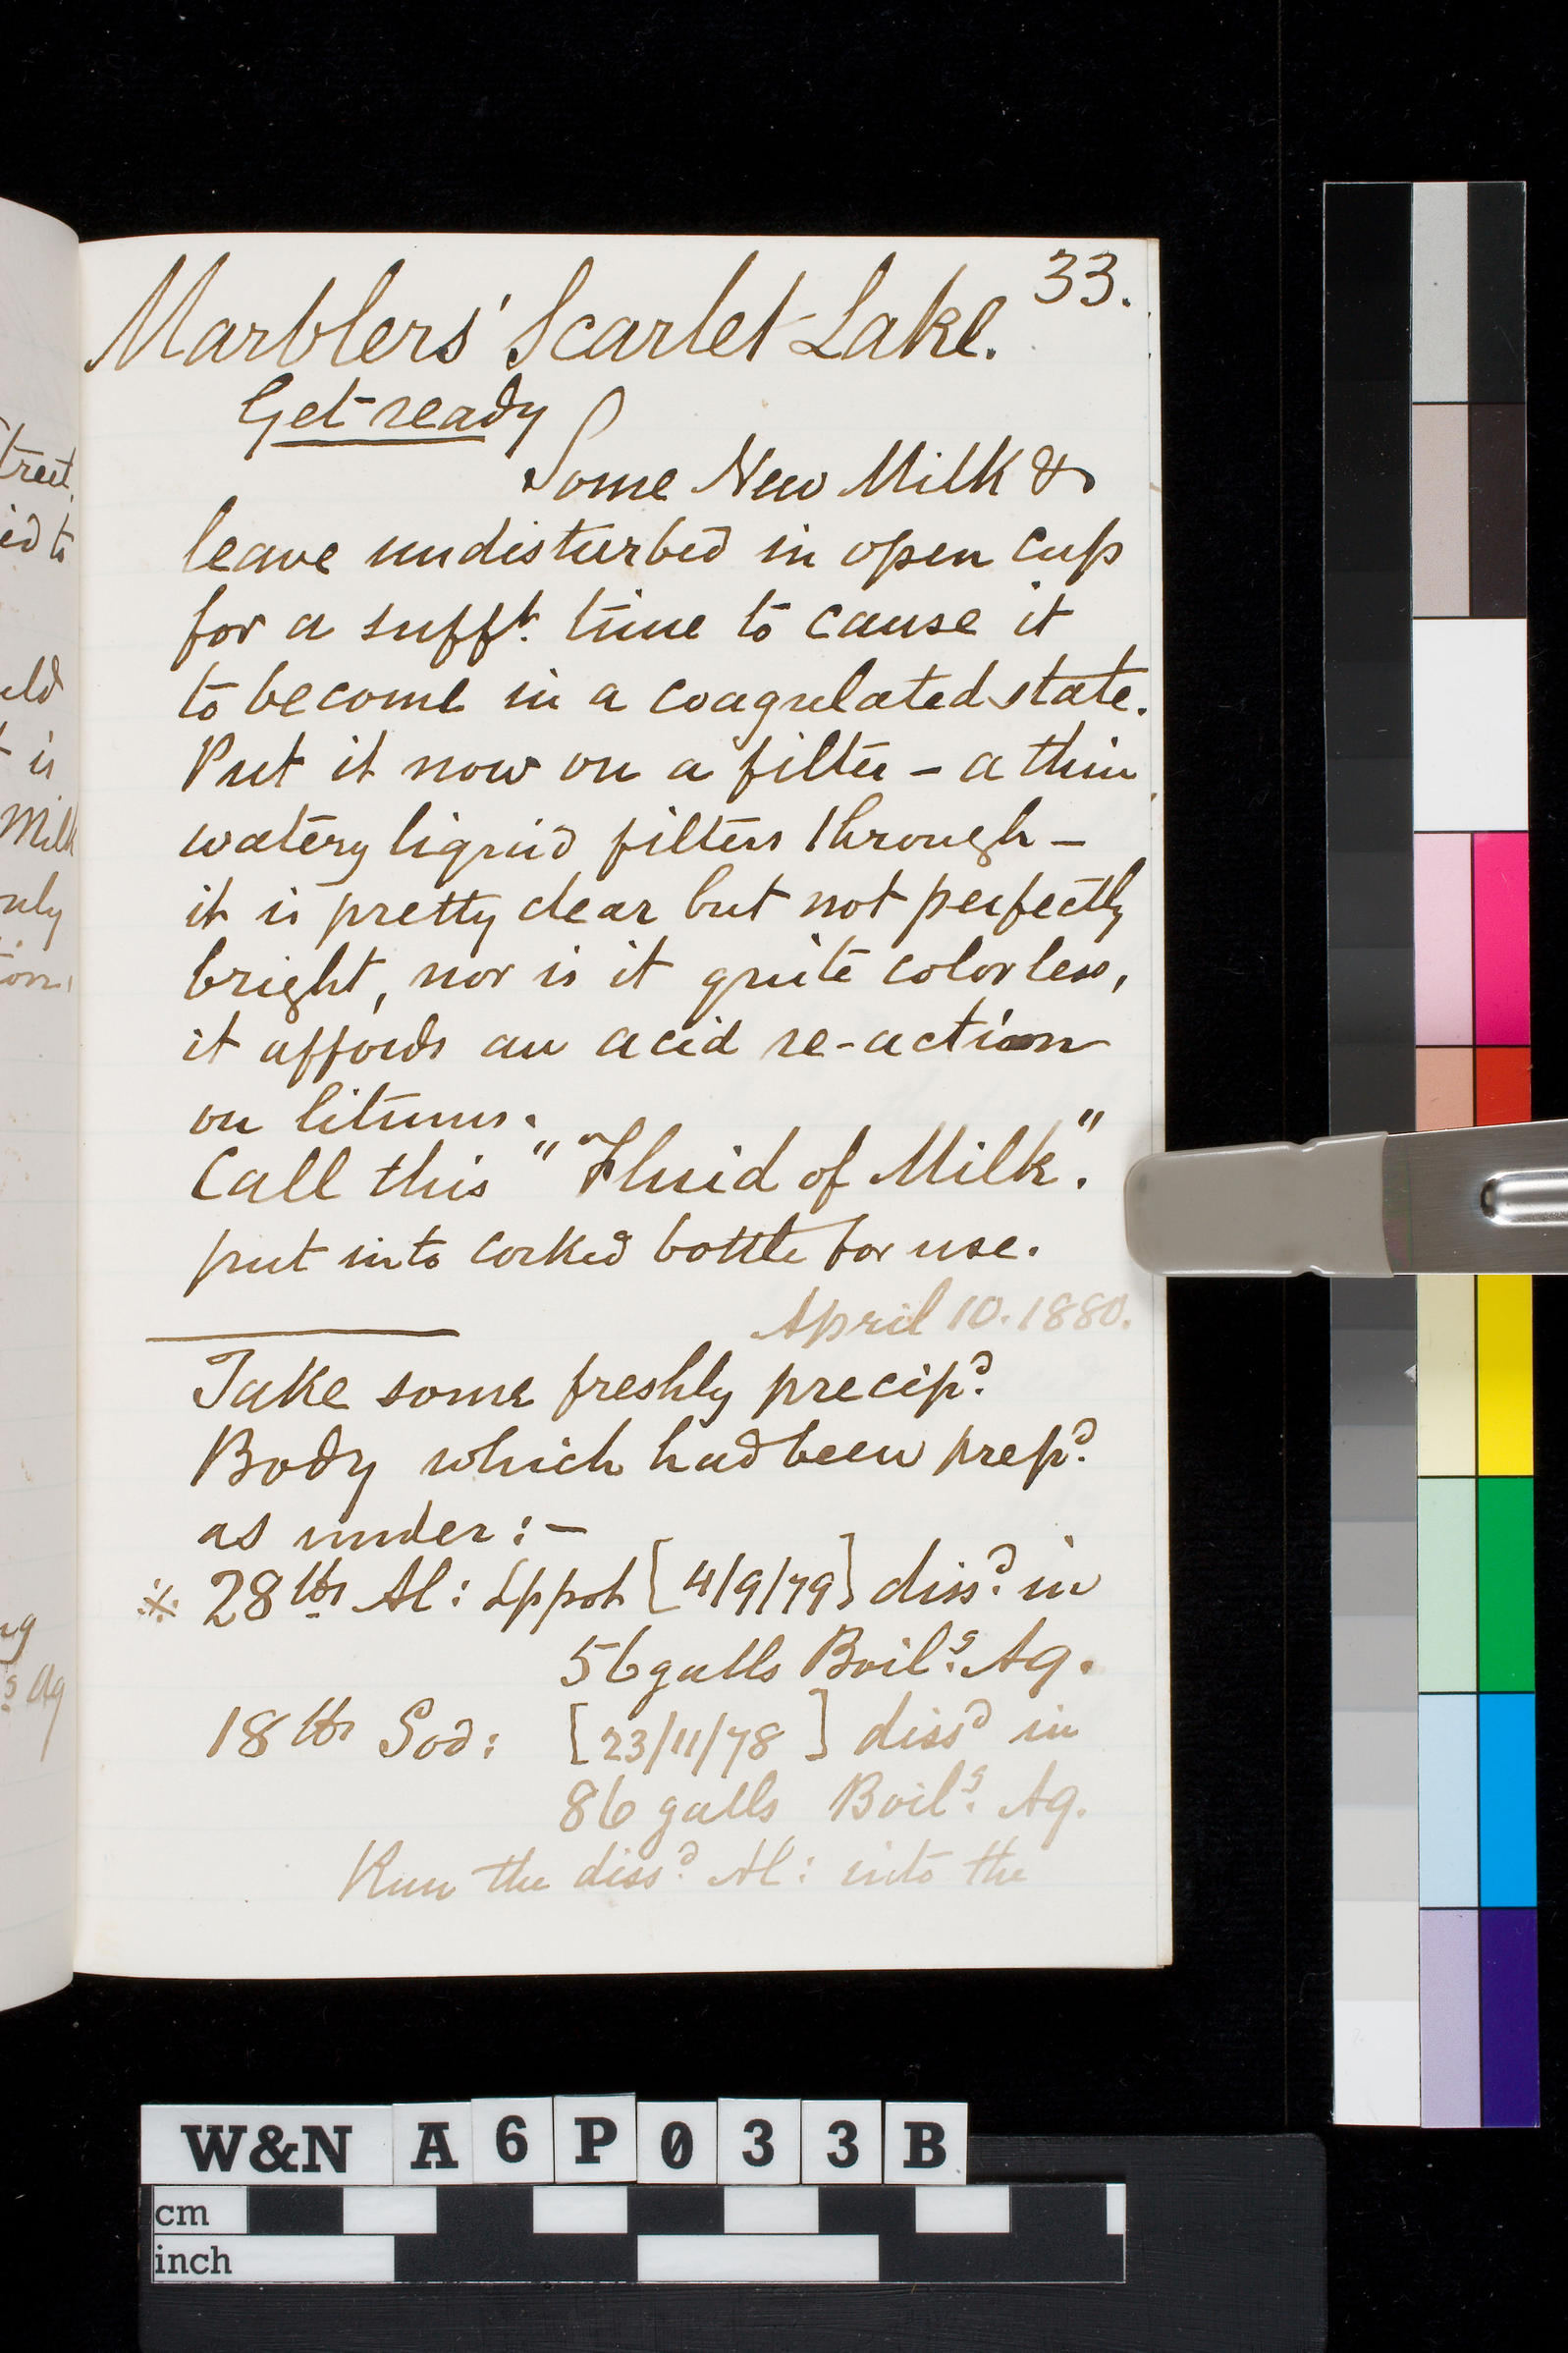 33.
Marblers' Scarlet Lake.
Get ready
Some New Milk &
leave undisturbed in open cup
for a sufft. time to cause it
to become in a coagulated state.
Put it now on a filter – a thin
watery liquid filters through –
it is pretty clear but not perfectly
bright, nor is it quite colorless,
it affords an acid re-action
on litmus.
Call this "Fluid of Milk".
put into corked bottle for use.
April 10. 1880.
Take some freshly precipd.
Body which had been prepd.
as under:–
※ 28 lbs Al: [4/9/79] dissd. in
56 galls Boilg. Aq.
18 lbs Sod: [23/11/78] dissd in
86 galls Boilg. Aq.
Run the dissd. Al: into the
treet.
ed to
uld
t is
Milk
nly
ng
g Aq
W&N A6P033B
cm
inch